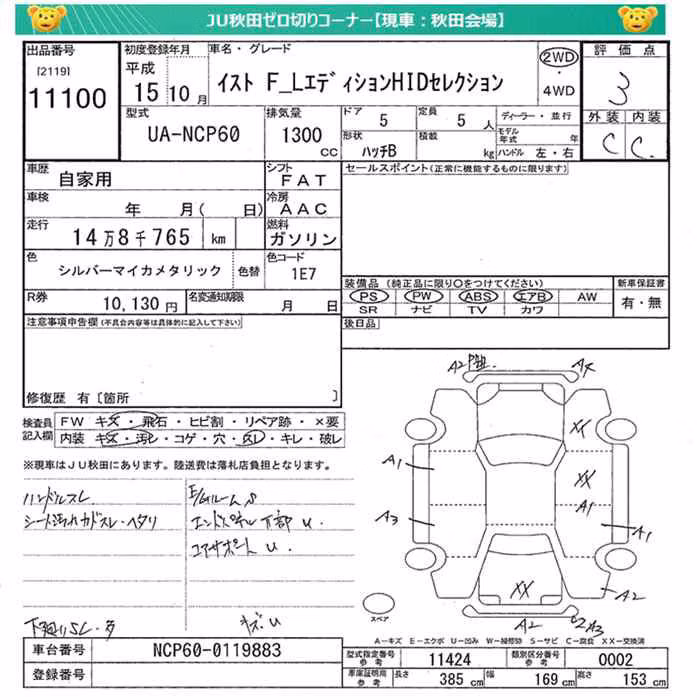 JU秋田ゼロ切りコーナー【現車：秋田会場】
出品番号 初度登録年月 車名・グレード 2WD 評価点
[2119] 平成 ・
11100 15 10月 イスト F_LエディションHIDセレクション 4WD 3
型式 排気量 ドア 定員 ディーラー・並行 外装 内装
UA-NCP60 1300 CC 5 5人 モデル年式 年 C C
形状 積載
ハッチB kg ハンドル 左・右
車歴 シフト セールスポイント(正常に機能するものに限ります)
自家用 FAT
車検 冷房
年 月( 日) AAC
走行 燃料
14万8千765 km ガソリン
色 色コード
シルバーマイカメタリック 色替 1E7
装備品(純正品に限り○をつけてください) 新車保証書
PS PW ABS エアB AW 有・無
SR ナビ TV カワ
R券 10,130円 名変通知期限 月 日
後日品
注意事項申告欄(不具合内容等は具体的に記入して下さい)
修復歴 有[箇所 ]
検査員記入欄
FW キズ・飛石・ヒビ割・リペア跡・×要
内装 キズ・汚レ・コゲ・穴・スレ・キレ・破レ
※現車はJU秋田にあります。陸送費は落札店負担となります。
ハンドルスレ
シート汚れ カドスレ・ヘタリ
エンドパネル下部 U
コアサポート U
キズ U
A2 A4
XX
A1 XX
A3 A1 A1
XX A2
A2 A3
スペア
A-キズ E-エクボ U-凹み W-補修跡 S-サビ C-腐食 XX-交換済
車台番号 NCP60-0119883
登録番号
型式指定番号参考 11424 類別区分番号参考 0002
車庫証明用参考 長さ 385 cm 幅 169 cm 高さ 153 cm